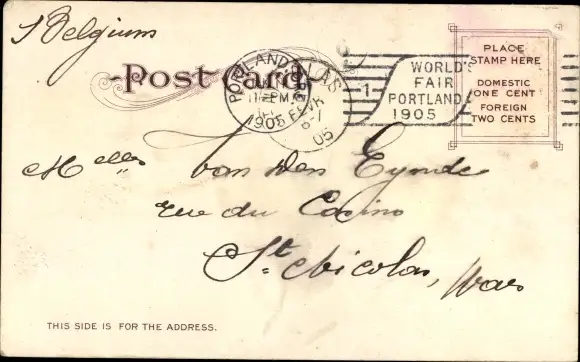 Belgium
Post Card
PORTLAND, ORE.
11-PM
1905
6-7
05
1
WORLD'S
FAIR
PORTLAND
1905
PLACE
STAMP HERE
DOMESTIC
ONE CENT
FOREIGN
TWO CENTS
Melles Van den Eynde
rue du Casino
St Nicolas, Waes
THIS SIDE IS FOR THE ADDRESS.